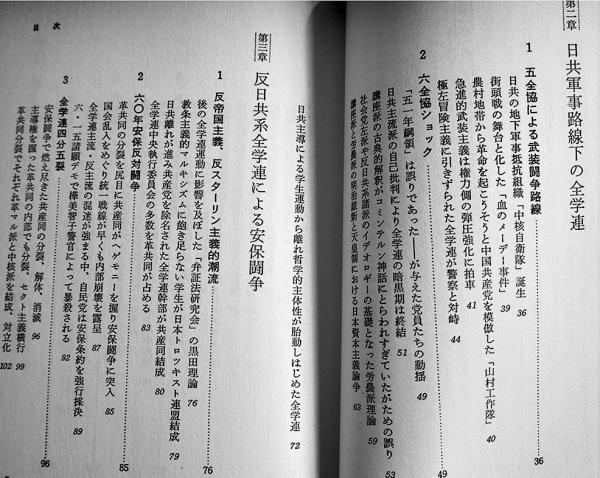 第二章 日共軍事路線下の全学連
1 五全協による武装闘争路線 36
日共の地下軍事抵抗組織「中核自衛隊」誕生 36
街頭戦の舞台と化した「血のメーデー事件」 39
農村地帯から革命を起こそうと中国共産党を模倣した「山村工作隊」 40
急進的武装主義は権力側の弾圧強化に拍車 41
極左冒険主義に引きずられた全学連が警察と対峙 44
2 六全協ショック 49
「五一年綱領」は誤りであった——が与えた党員たちの動揺 49
日共主流派の自己批判により全学連の暗黒期は終結 51
講座派の古典的解釈がコミンテルン神話にとらわれすぎていたがための誤り 53
社会党左派や反日共系諸派のイデオロギーの基礎となった労農派理論 59
講座派と労農派の明治維新と天皇制における日本資本主義論争 63
日共主導による学生運動から離れ哲学的主体性が胎動しはじめた全学連 72
第三章 反日共系全学連による安保闘争
1 反帝国主義、反スターリン主義的潮流 76
後の全学連運動に影響を及ぼした「弁証法研究会」の黒田理論 76
教条主義的マルキシズムに飽き足らない学生が日本トロツキスト連盟結成 79
日共離れが進み共産党を除名された全学連幹部が共産同結成 80
全学連中央執行委員会の多数を革共同が占める 83
2 六〇年安保反対闘争 85
革共同の分裂を尻目に共産同がヘゲモニーを握り安保闘争に突入 85
国会乱入をめぐり統一戦線が早くも内部崩壊を露呈 87
全学連主流・反主流の混迷が強まる中、自民党は安保条約を強行採決 89
六・一五請願デモで樺美智子警官によって暴殺される 92
3 全学連四分五裂 96
安保闘争で燃え尽きた共産同の分裂、解体、消滅 96
主導権を握った革共同の内部でも分裂、セクト主義横行 99
革共同分裂でそれぞれ革マル派と中核派を結成、対立化 102
目次